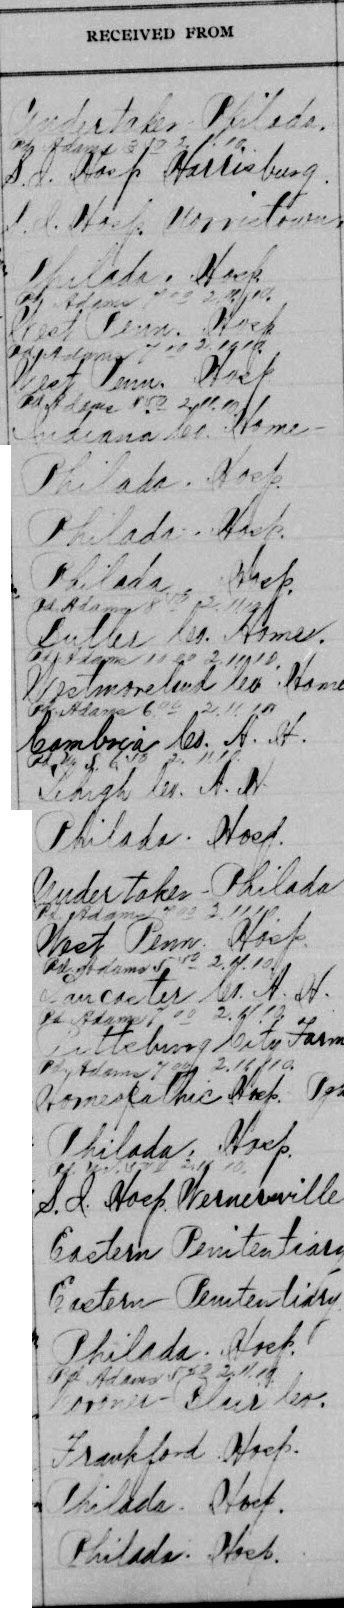 RECEIVED FROM
Undertaker - Philada.
Pd. Adams 2.11.10.
S. I. Hosp Harrisburg.
S. I. Hosp. Norristown
Philada. Hosp.
Pd. Adams 7 00 2.11.10.
West Penn. Hosp
Pd. Adams 7 00 2.19.10.
West Penn. Hosp
Pd. Adams 8 50 2.11.10.
Indiana Co. Home -
Philada. Hosp.
Philada. Hosp.
Philada. Hosp.
Pd. Adams 8 2.11.10
Butler Co. Home.
Pd. Adams 10 00 2.11.10.
Westmoreland Co Home
Pd. Adams 6 00 2.11.10
Cambria Co. A. H.
Pd. 2. 11.10
Lehigh Co. A. H
Philada. Hosp.
Undertaker - Philada
Pd. Adams 7 00 2.11.10.
West Penn. Hosp.
Pd. Adams 5 50 2.11.10.
Lancaster Co. A. H.
Pd. Adams 7 00 2.11.10.
Pittsburg City Farm
Pd. Adams 7 00 2.11.10.
Homeopathic Hosp.
Philada. Hosp.
Pd. 2.11.10.
S. I. Hosp. Wernersville
Eastern Penitentiary
Eastern Penitentiary
Philada. Hosp.
Pd. Adams 5 50 2.11.10
Coroner - Blair Co.
Frankford Hosp.
Philada. Hosp.
Philada. Hosp.